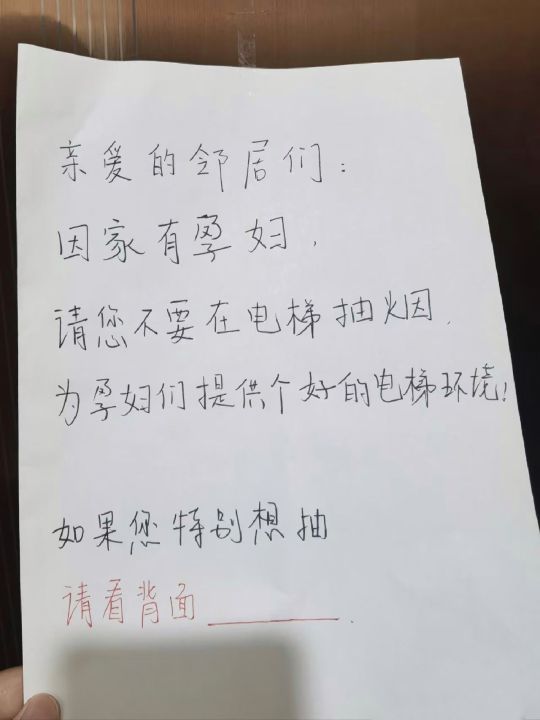 亲爱的邻居们：
因家有孕妇，
请您不要在电梯抽烟．
为孕妇们提供个好的电梯环境！
如果您特别想抽
请看背面______．